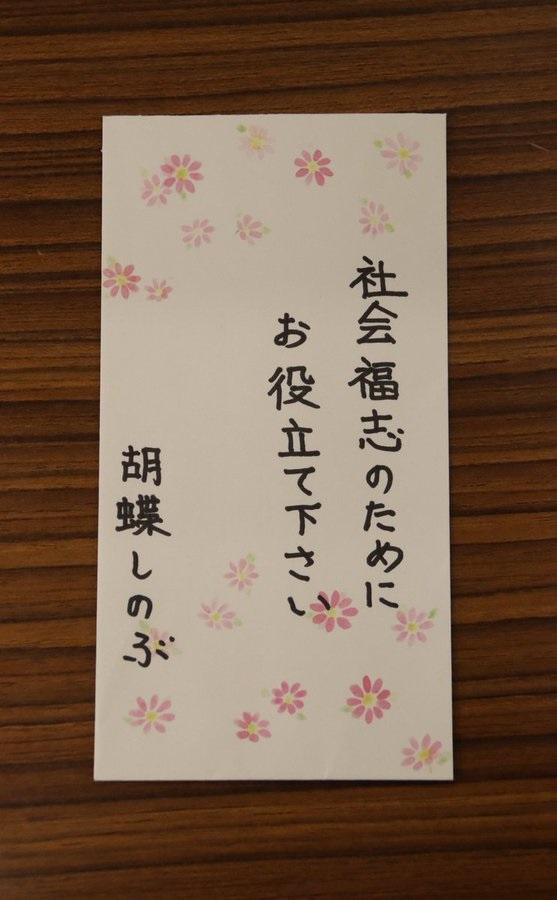 社会福志のために
お役立て下さい
胡蝶しのぶ